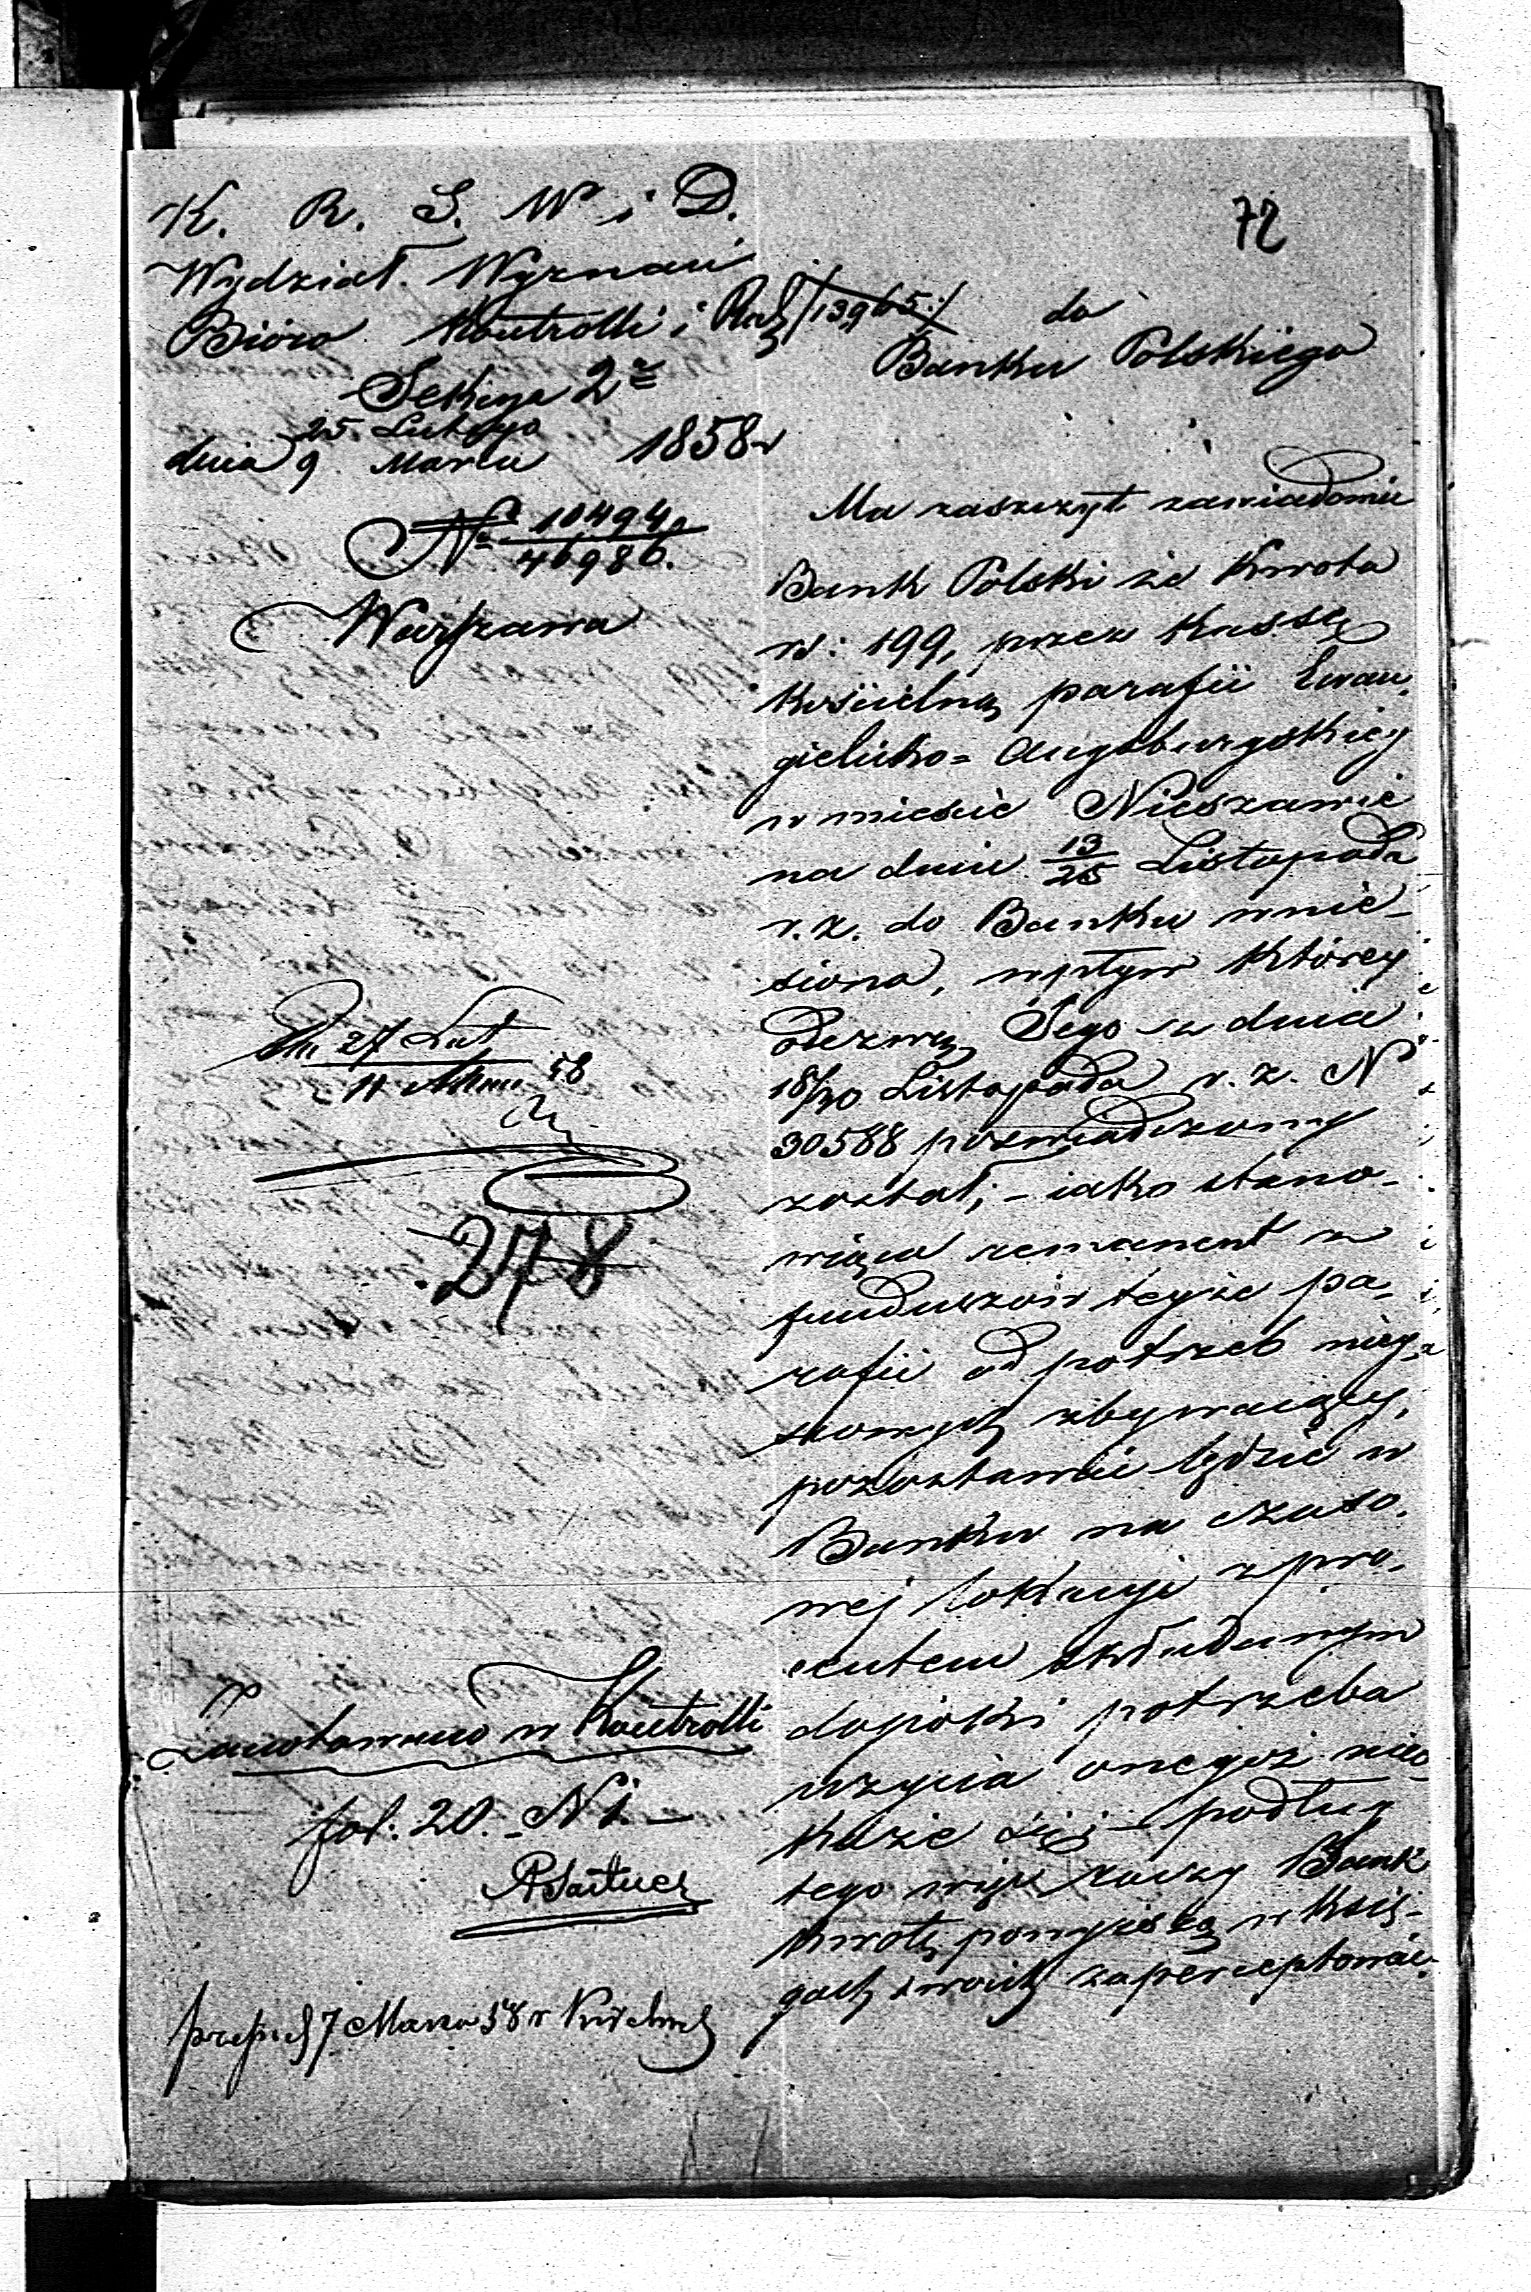 72
K. R. S. W. i D.
Wydział Wyznań
Bióro Kontrolli i Rach /13965:/
Sekcya 2ᵃ
dnia 25 Lutego / 9 Marca 1858 r
Nº 10494 / 46986.
Warszawa
do
Banku Polskiego
Ma zaszczyt zawiadomić
Bank Polski że kwota
rs: 199, przez Kassę
Kościelną parafii Ewan-
gielicko= Augsburgskiey
w mieście Nieszawie
na dniu 13/25 Listopada
r. z. do Banku wnie-
siona, wpływ którey
odezwą Jego z dnia
18/30 Listopada r. z. Nº
30588 poświadczony
został; – iako stano-
wiąca remanent z
funduszów teyże pa-
rafii od potrzeb miey-
scowych zbywaiący,
pozostawać będzie w
Banku na czaso-
wej lokacyi z pro-
centem składanym
dopóki potrzeba
użycia onegoż nieo-
każe się; – podług
tego więc raczy Bank
kwotę powyższą w Księ-
gach swoich zaperceptować.
27 Lut
11 58
278
Zanotowano w Kontrolli
fol: 20. N 1.
7 Marca 58 r